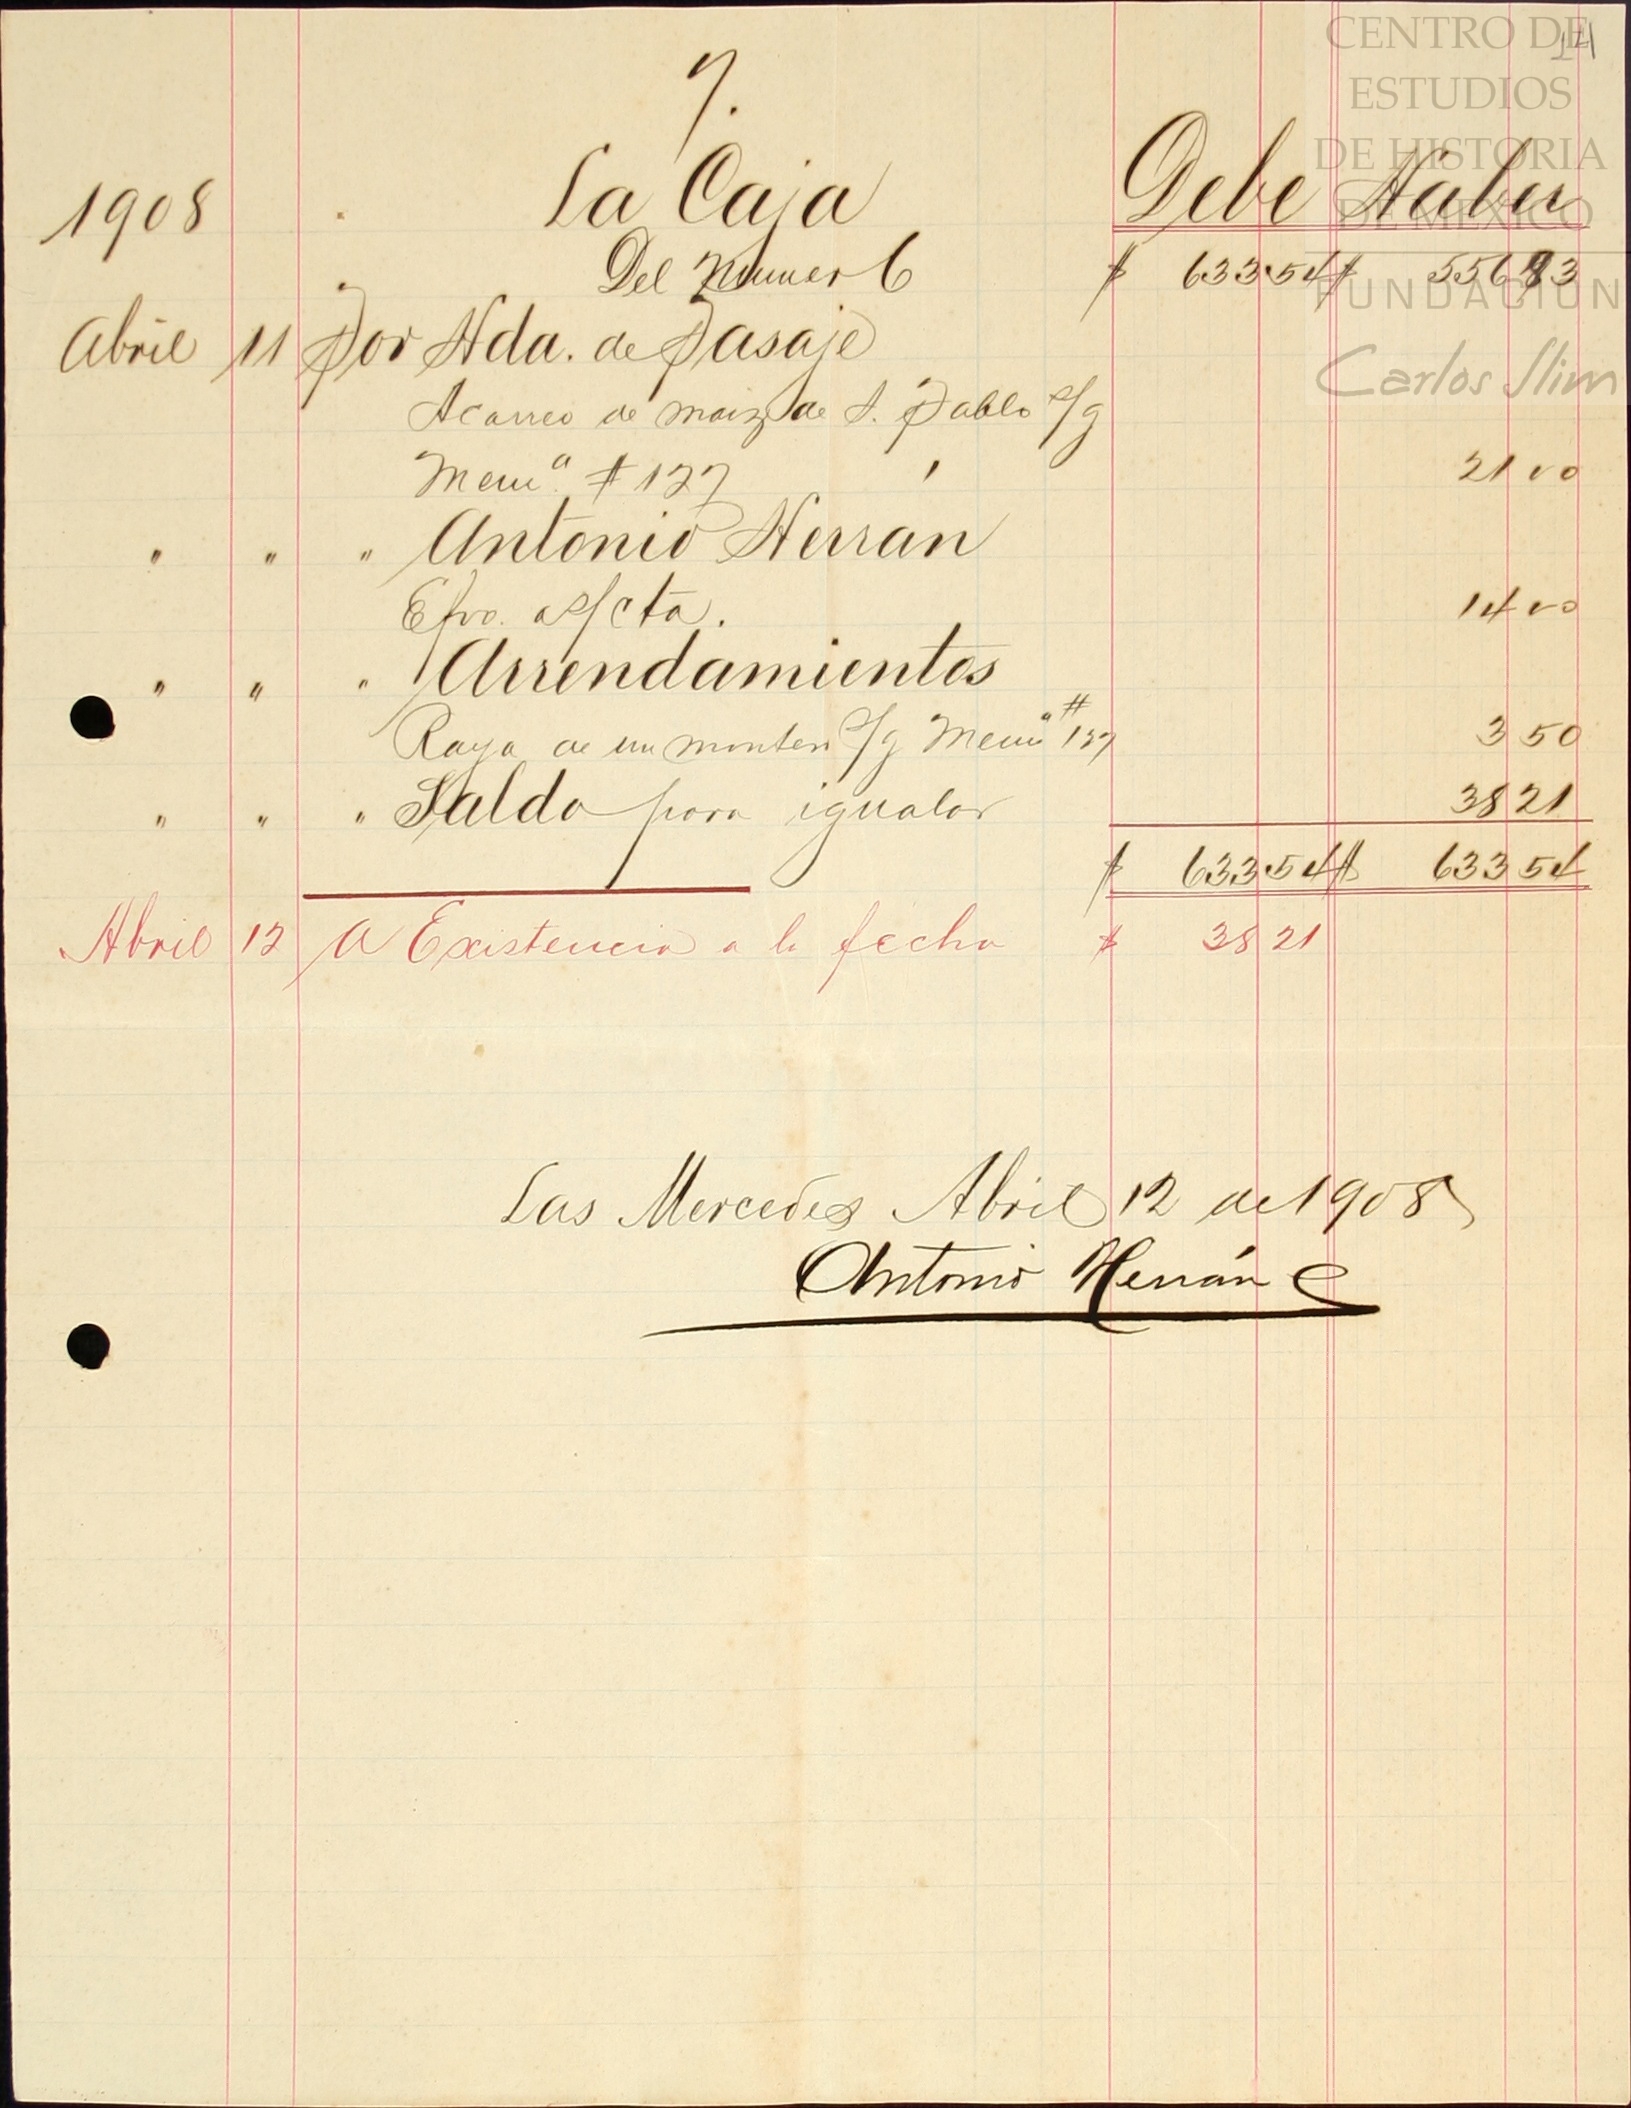 CENTRO DE
ESTUDIOS
DE HISTORIA
DE MÉXICO
FUNDACIÓN
Carlos Slim
7.
1908 La Caja Debe Haber
Del Numer 6 $ 633 54 $ 556 83
Abril 11 Por Hda. de Pasaje
Acarreo de maiz de S. Pablo s/g
Memª # 127 21 00
" " " Antonio Herran
Efvo. a s/cta. 14 00
" " " Arrendamientos
Raya de un montero s/g Memª # 127 3 50
" " " Saldo para igualar 38 21
$ 633 54 $ 633 54
Abril 12 A Existencia a la fecha $ 38 21
Las Mercedes Abril 12 de 1908
Antonio Herrán